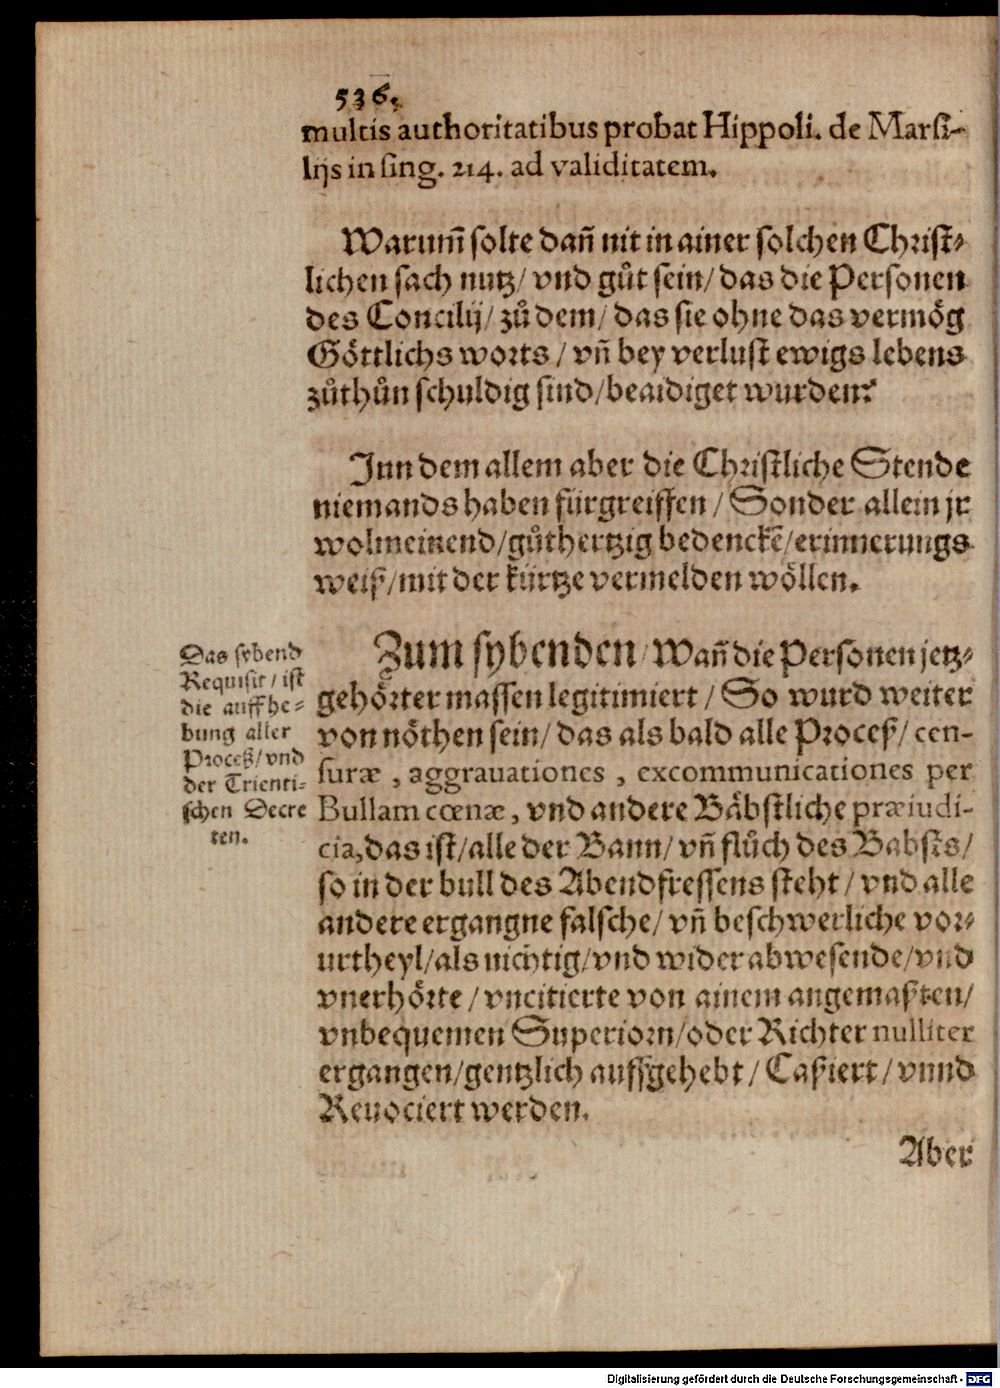 536.
multis authoritatibus probat Hippoli. de Marsi-
lijs in sing. 214. ad validitatem.
Warum̃ solte dañ nit in ainer solchen Christ⸗
lichen sach nutz/ vnd gůt sein/ das die Personen
des Concilij/ zů dem/ das sie ohne das vermög
Göttlichs worts/ vñ bey verlust ewigs lebens
zůthůn schuldig sind/ beaidiget wurden?
Inn dem allem aber die Christliche Stende
niemands haben fürgreiffen/ Sonder allein jr
wolmeinend/ gůthertzig bedenckẽ/ erinnerungs
weiß/ mit der kürtze vermelden wöllen.
Das sybend
Requisit/ ist
die auffhe⸗
bung aller
Proceß/ vnd
der Trienti⸗
schen Decre
ten.
Zum sybenden/ Wañ die Personen jetz⸗
gehörter massen legitimiert/ So wurd weiter
von nöthen sein/ das als bald alle Proceß/ cen-
suræ, aggrauationes, excommunicationes per
Bullam cœnæ, vnd andere Bäbstliche præiudi-
cia, das ist/ alle der Bann/ vñ flůch des Babsts/
so in der bull des Abendfressens steht/ vnd alle
andere ergangne falsche/ vñ beschwerliche vor⸗
urtheyl/ als nichtig/ vnd wider abwesende/ vnd
vnerhörte/ vncitierte von ainem angemaßten/
vnbequemen Superiorn/ oder Richter nulliter
ergangen/ gentzlich auffgehebt/ Caßiert/ vnnd
Reuociert werden.
Aber
Digitalisierung gefördert durch die Deutsche Forschungsgemeinschaft - DFG